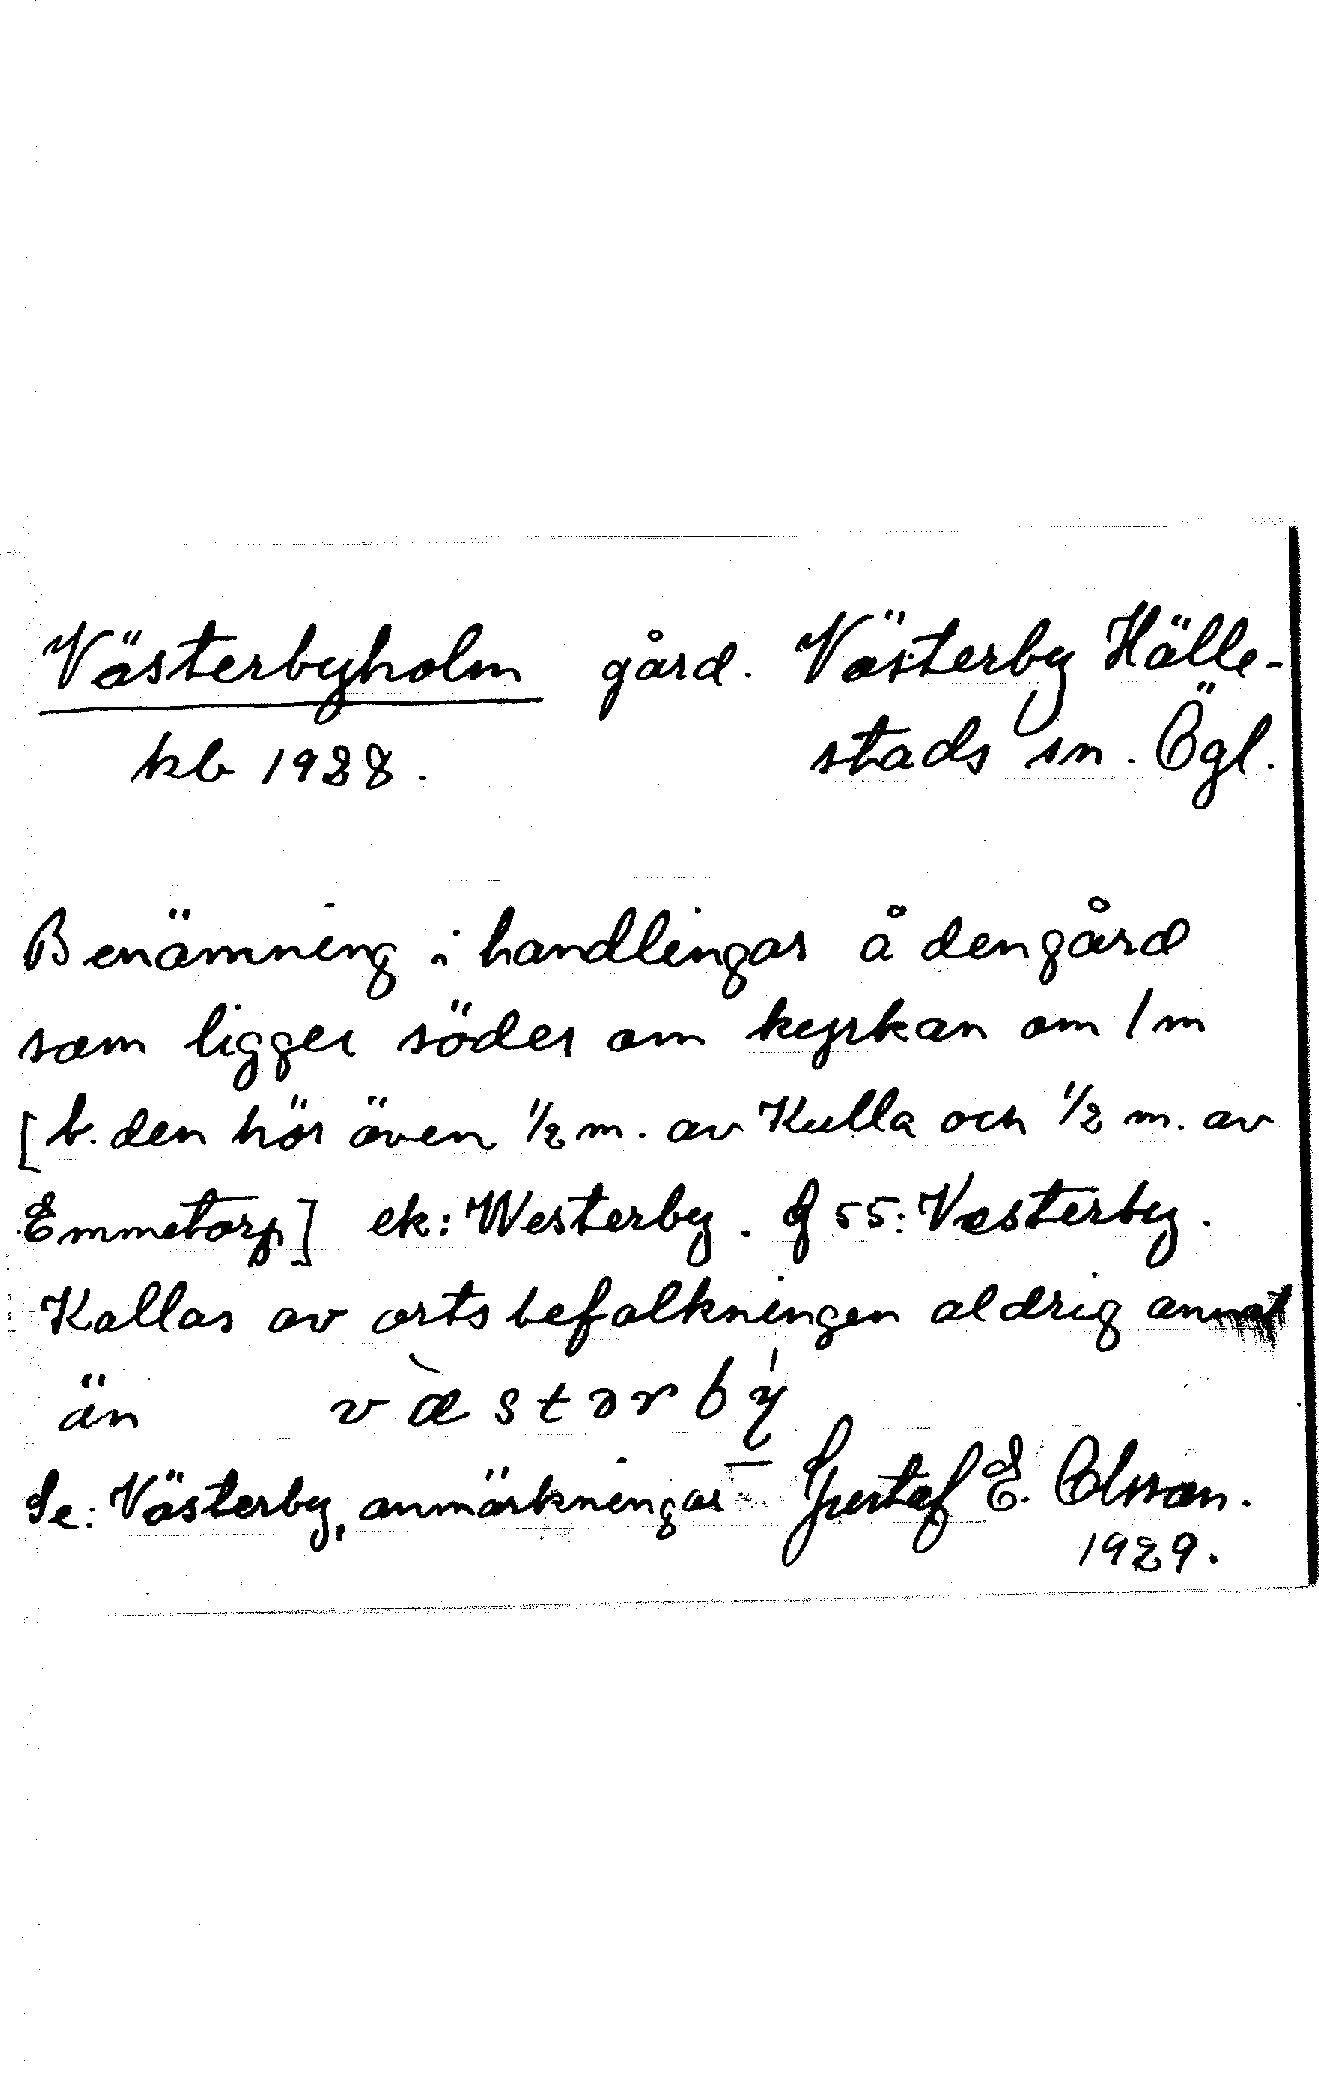 Västerbyholm gård. Västerby Hälle-
kb 1928. stads sn. Ögl.
Benämning i handlingar å den gård
som ligger söder om kyrkan om 1 m
[t. den hör även 1/2 m. av Kulla och 1/2 m. av
Emmetorp] ek: Westerby. G 55: Vesterby.
Kallas av ortsbefolkningen aldrig annat
än væstərby
Se: Västerby, anmärkningar Gustaf E. Olsson.
1929.